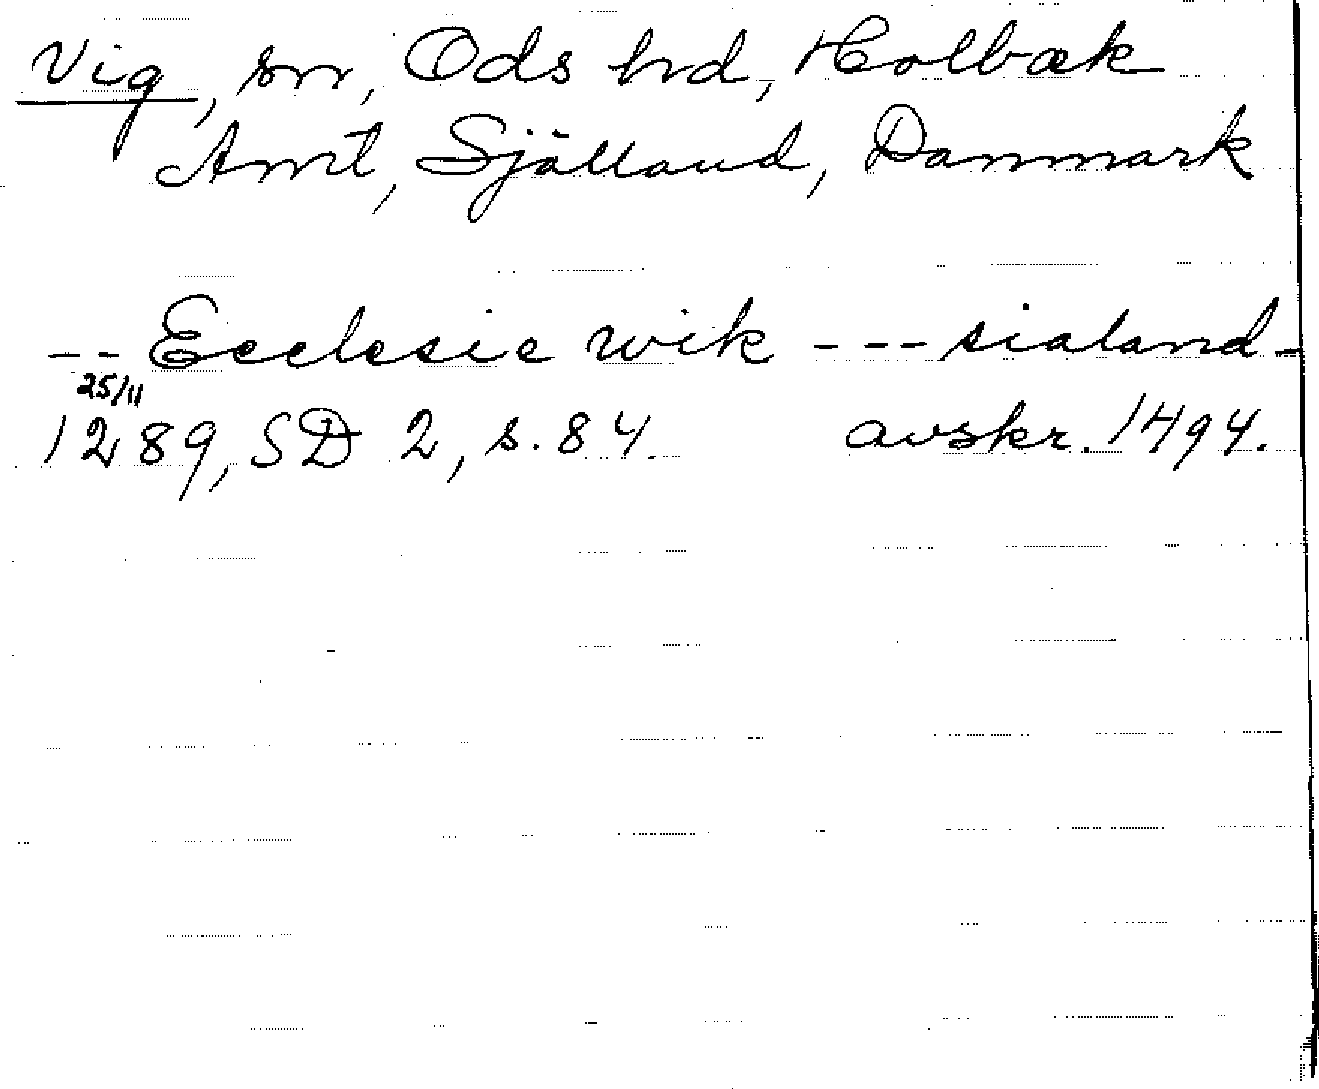 Vig, sn, Ods hd, Holbæk
Amt, Själland, Danmark
-- Ecclesie wik --- sialand-
25/11
1289, SD 2, s. 84 avskr. 1494.